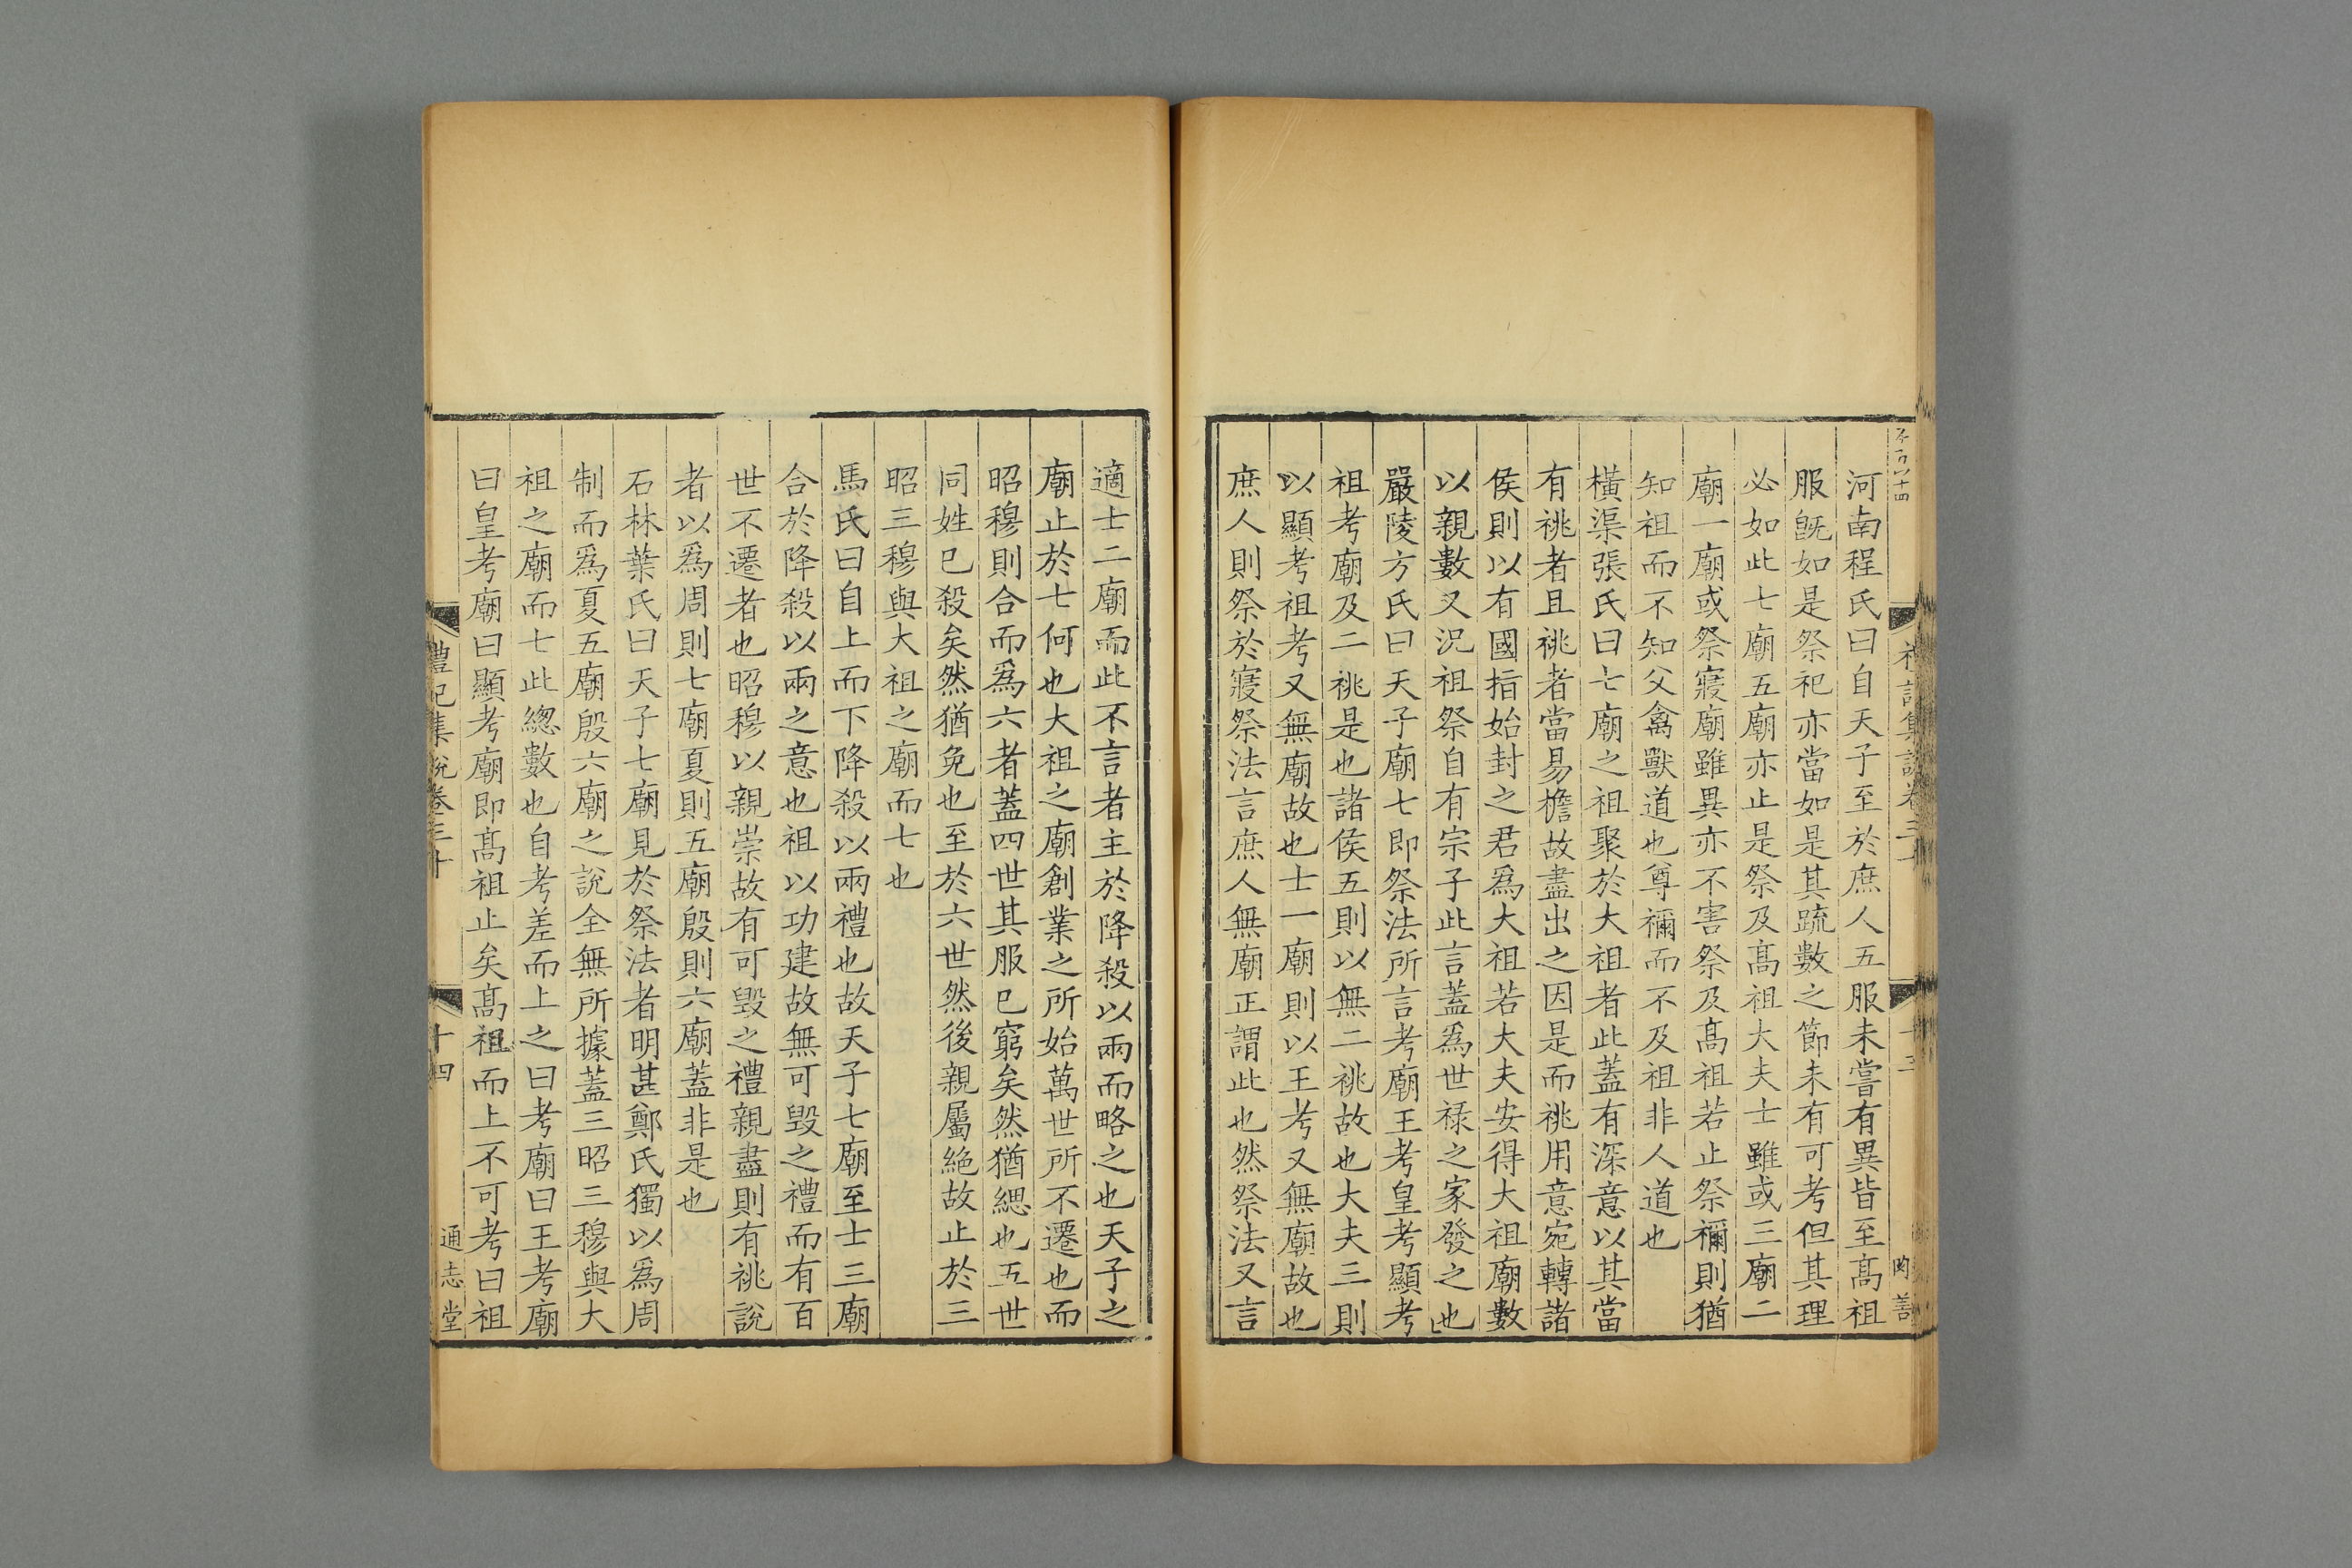 河南程氏曰自天子至於庶人五服未嘗有異皆至髙祖
服旣如是祭祀亦當如是其䟽數之節未有可考但其理
必如此七廟五廟亦止是祭及髙祖大夫士雖或三廟二
廟一廟或祭寢廟雖異亦不害祭及髙祖若止祭禰則猶
知祖而不知父禽獸道也尊禰而不及祖非人道也
橫渠張氏曰七廟之祖聚於大祖者此蓋有深意以其當
有祧者且祧者當易檐故盡出之因是而祧用意宛轉諸
侯則以有國指始封之君爲大祖若大夫安得大祖廟數
以親數又況祖祭自有宗子此言蓋爲世禄之家發之也
嚴陵方氏曰天子廟七即祭法所言考廟王考皇考顯考
祖考廟及二祧是也諸侯五則以無二祧故也大夫三則
以顯考祖考又無廟故也士一廟則以王考又無廟故也
庶人則祭於寢祭法言庶人無廟正謂此也然祭法又言
適士二廟而此不言者主於降殺以兩而略之也天子之
廟止於七何也大祖之廟創業之所始萬世所不遷也而
昭穆則合而爲六者蓋四世其服已窮矣然猶緦也五世
同姓已殺矣然猶免也至於六世然後親屬絶故止於三
昭三穆與大祖之廟而七也
馬氏曰自上而下降殺以兩禮也故天子七廟至士三廟
合於降殺以兩之意也祖以功建故無可毀之禮而有百
世不遷者也昭穆以親崇故有可毀之禮親盡則有祧說
者以爲周則七廟夏則五廟殷則六廟蓋非是也
石林葉氏曰天子七廟見於祭法者明甚鄭氏獨以爲周
制而爲夏五廟殷六廟之說全無所據蓋三昭三穆與大
祖之廟而七此緫數也自考差而上之曰考廟曰王考廟
曰皇考廟曰顯考廟即髙祖止矣髙祖而上不可考曰祖
禮記集說卷三十
十四
通志堂